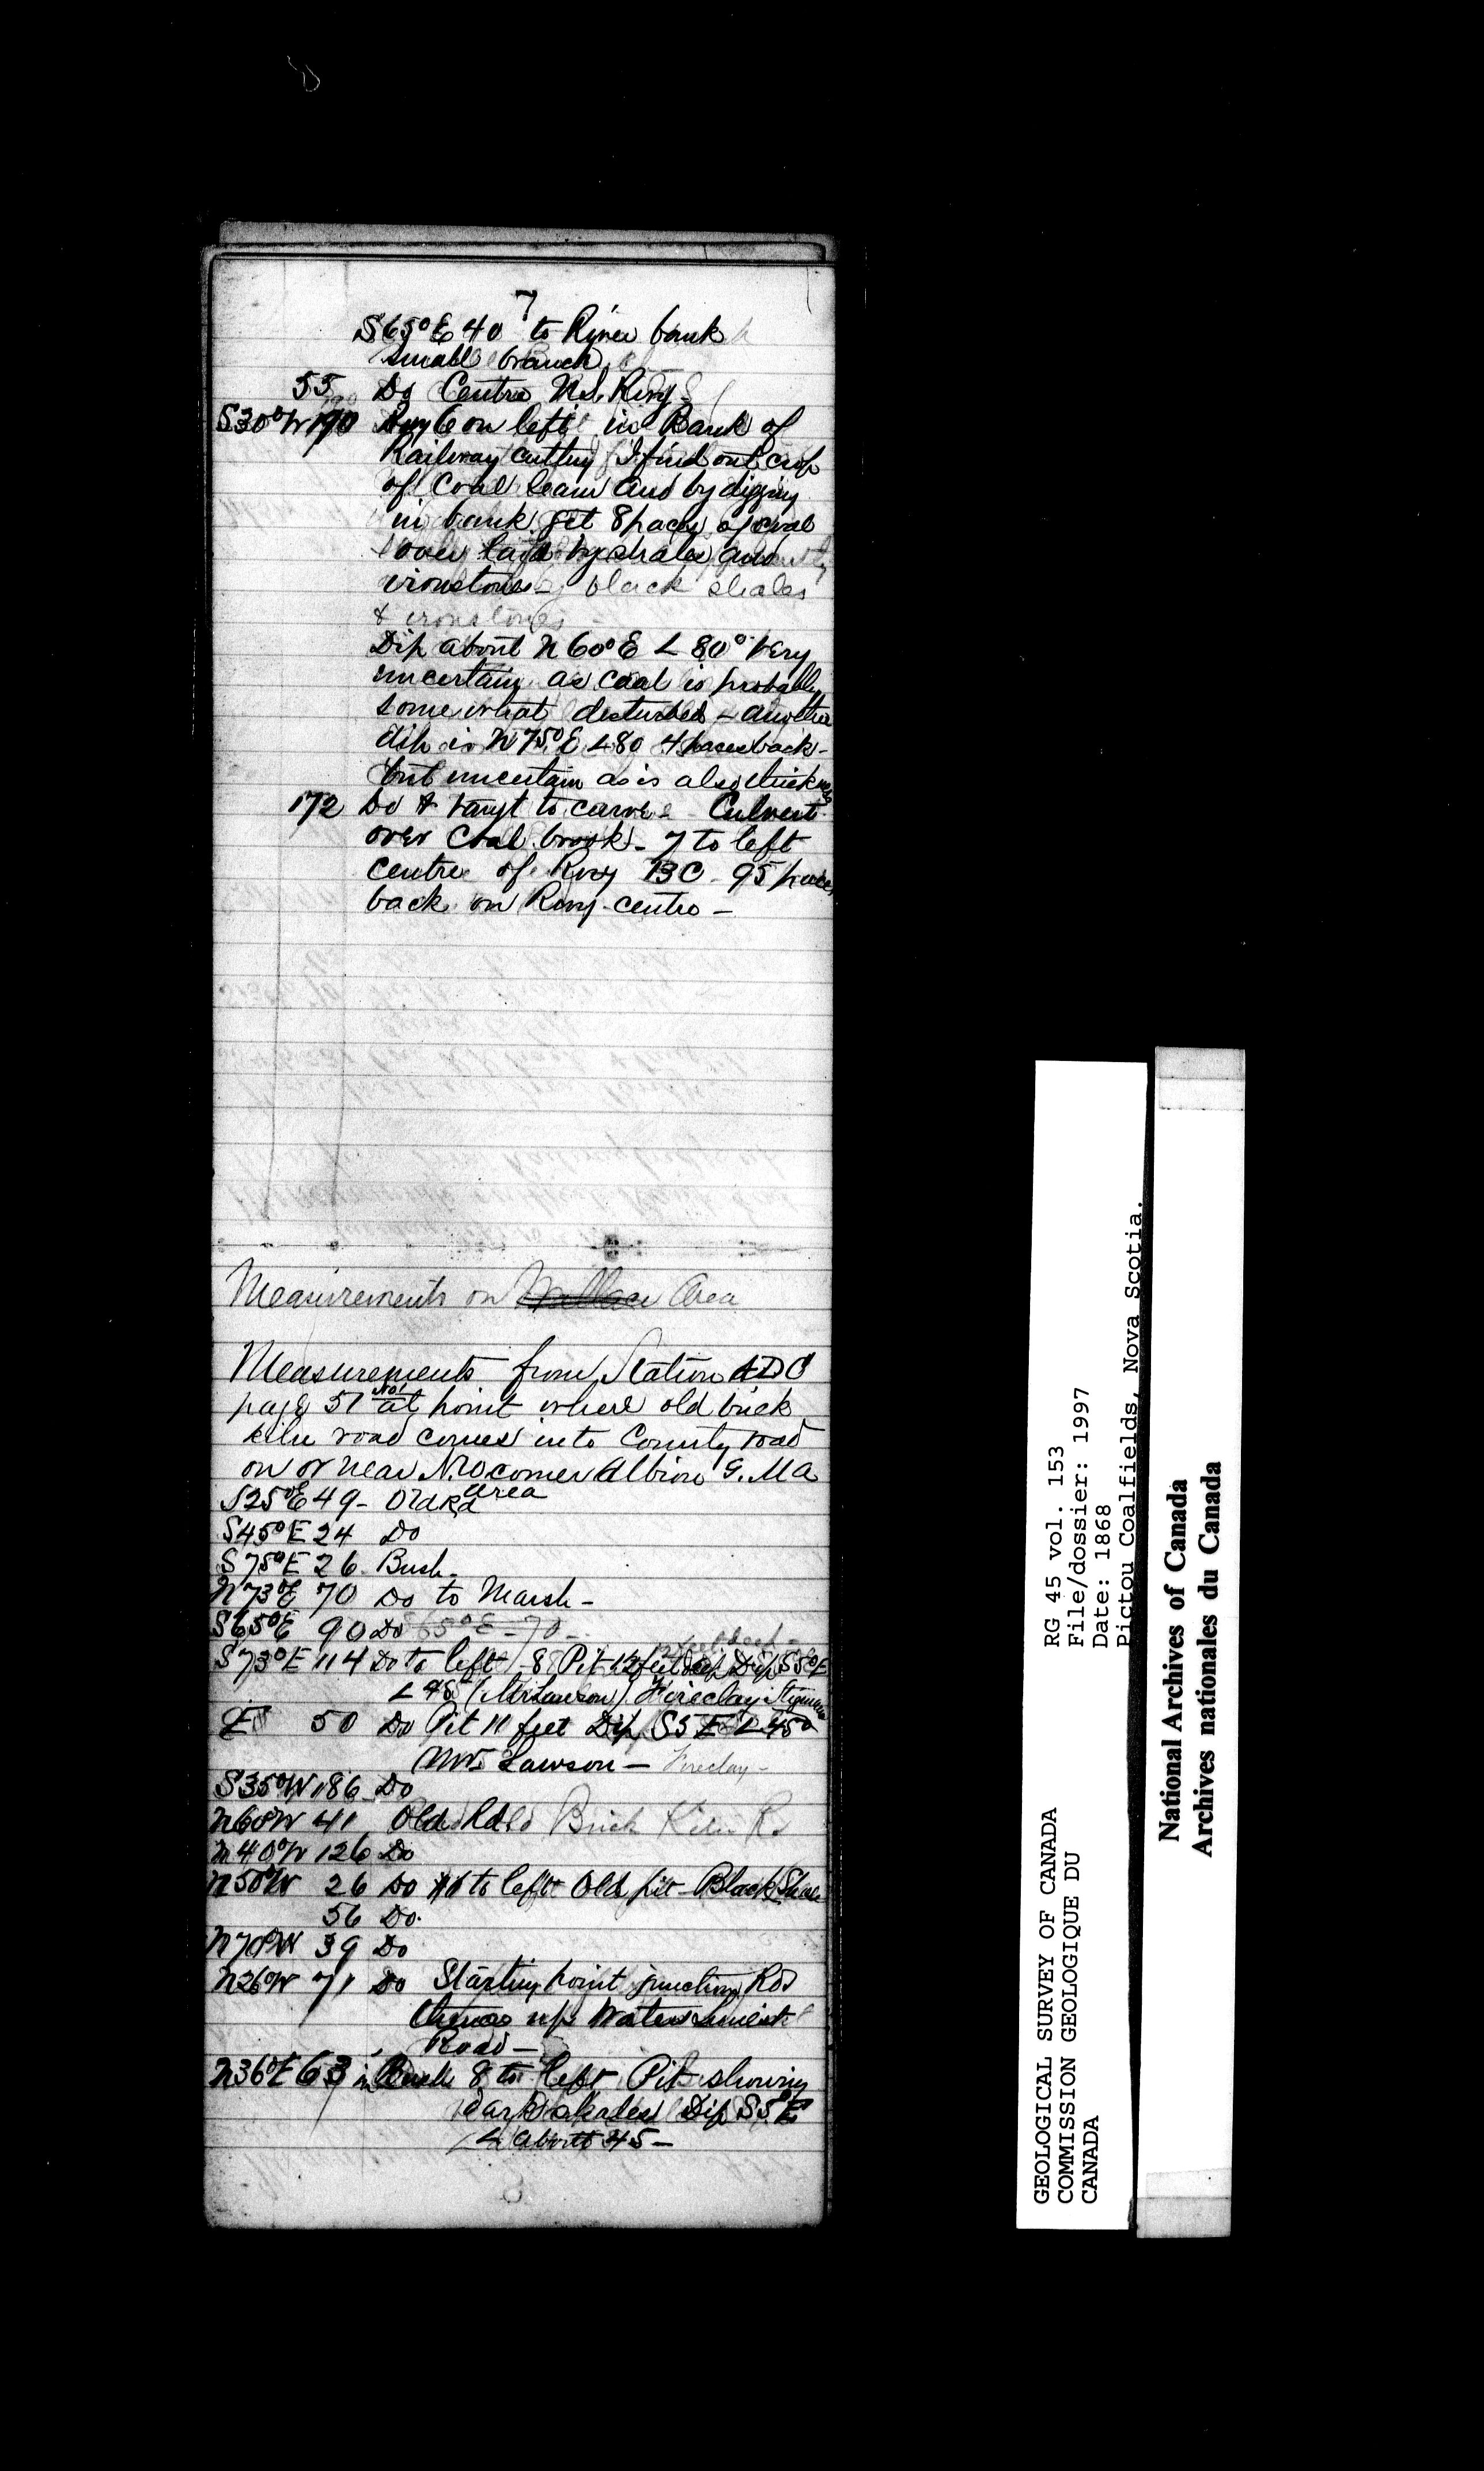 7
S65°E 40 to River bank
small branch
55 Do Centre N.S. Rwy
S30°W 190 Rwy 6 on left in Bank of
Railway cutting I find out crop
of Coal seam and by digging
in bank get 8 paces of coal
over laid by shales and
ironstone black shales
& ironstones
Dip about N 60° E L 80° very
uncertain as coal is probably
somewhat disturbed - another
dip is N 75° E L 80 4 paces back -
but uncertain as is also thickness
172 Do & tangt to curve Culvert
over Coal brook - 7 to left
centre of Rwy 13C - 95 paces
back on Rwy centre -
Measurements on Wallace Area
Measurements from Station
page 51 No 1 at point where old brick
kiln road comes into County road
on or near N.W corner Albion G. M A
Area
S25°E 49 - Old Rd
S45°E 24 Do
S75°E 26 Bush -
N73°E 70 Do to Marsh -
S65°E 90 Do S65°E - 70 -
12 feet deep -
S73°E 114 Do to left 8 Pit 12 feet deep Dip S5°E
L 48° (Mr Lawson) Fireclay Stigmaria
E 50 Do Pit 11 feet Dip S5 E L 45°
Mr. Lawson - Fireclay -
S35°W 186 Do
N60°W 41 Old Rd Old Brick Kiln Rd
N40°W 126 Do
N50°W 26 Do 11 to left Old pit - Black Shale
56 Do
N70°W 39 Do
N26°W 71 Do Starting point junction Rds
thence up
Road -
N36°E 63 in Bush 8 to left Pit showing
dark shales Dip S5°E
L about 45 -
8
GEOLOGICAL SURVEY OF CANADA
COMMISSION GEOLOGIQUE DU
CANADA
RG 45 vol. 153
File/dossier: 1997
Date: 1868
Pictou Coalfields, Nova Scotia.
National Archives of Canada
Archives nationales du Canada